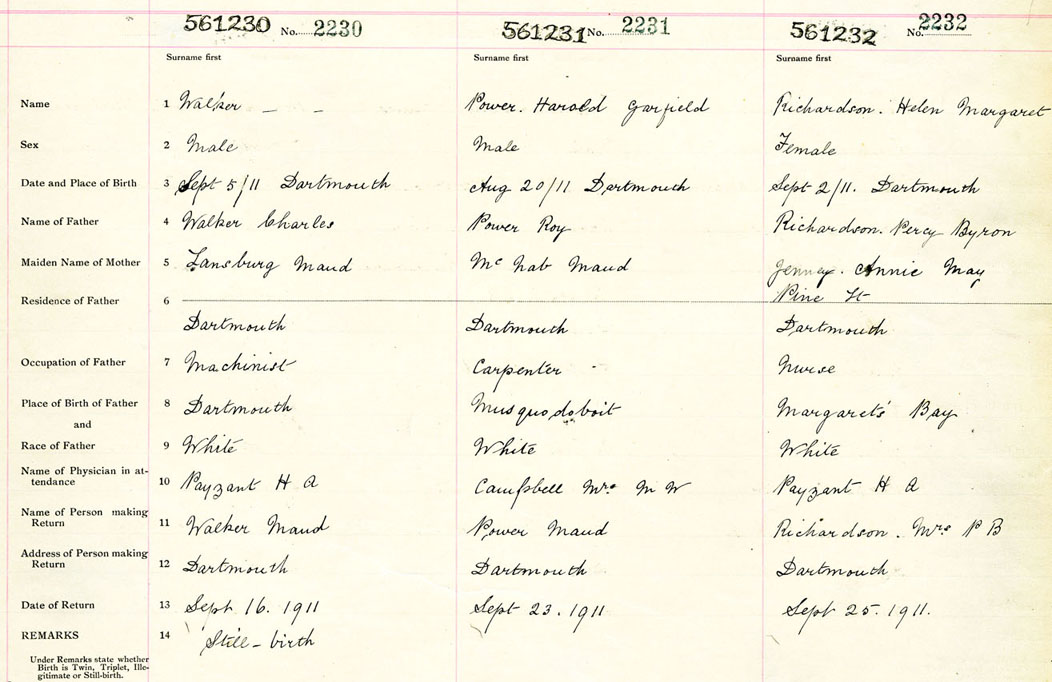 561230 No. 2230 561231 No. 2231 561232 No. 2232
Surname first Surname first Surname first
Name 1 Walker — — Power. Harold Garfield Richardson. Helen Margaret
Sex 2 Male Male Female
Date and Place of Birth 3 Sept 5/11 Dartmouth Aug 20/11 Dartmouth Sept 2/11. Dartmouth
Name of Father 4 Walker Charles Power Roy Richardson. Percy Byron
Maiden Name of Mother 5 Lansburg Maud Mc Nab Maud Jenney. Annie May
Residence of Father 6 Pine St
Dartmouth Dartmouth Dartmouth
Occupation of Father 7 Machinist Carpenter Nurse
Place of Birth of Father 8 Dartmouth Musquodoboit Margaret's Bay
and
Race of Father 9 White White White
Name of Physician in at-
tendance 10 Payzant H A Campbell Mrs M W Payzant H A
Name of Person making
Return 11 Walker Maud Power Maud Richardson. Mrs P B
Address of Person making
Return 12 Dartmouth Dartmouth Dartmouth
Date of Return 13 Sept 16. 1911 Sept 23. 1911 Sept 25. 1911.
REMARKS 14 Still-birth
Under Remarks state whether
Birth is Twin, Triplet, Ille-
gitimate or Still-birth.